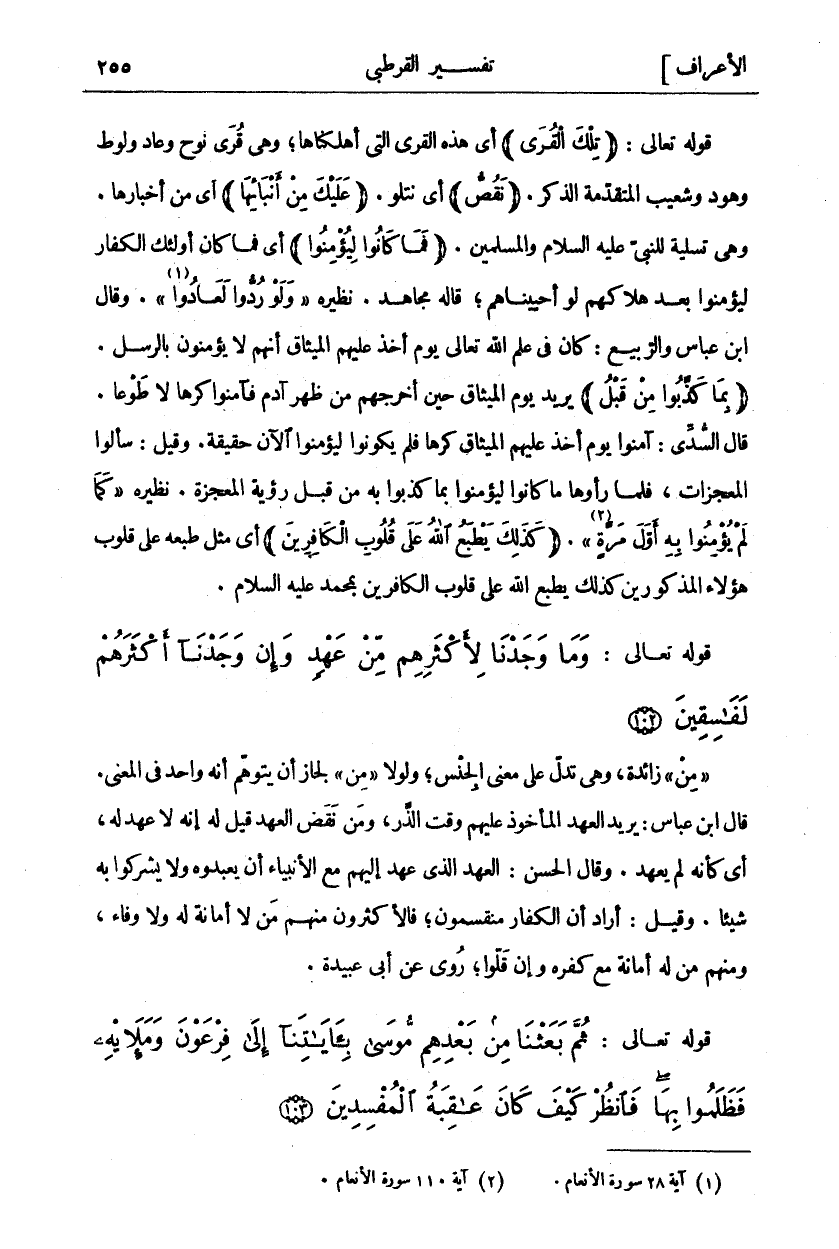 الأعراف ] تفســـير القرطبى ٢٥٥
قوله تعالى : ﴿ تِلْكَ ٱلْقُرَى ﴾ أى هذه القرى التى أهلكناها؛ وهى قُرَى نوح وعاد ولوط
وهود وشعيب المتقدّمة الذكر . ﴿ نَقُصُّ ﴾ أى نتلو . ﴿ عَلَيْكَ مِنْ أَنْبَائِهَا ﴾ أى من أخبارها .
وهى تسلية للنبىّ عليه السلام والمسلمين . ﴿ فَمَا كَانُوا لِيُؤْمِنُوا ﴾ أى فما كان أولئك الكفار
ليؤمنوا بعد هلاكهم لو أحييناهم ؛ قاله مجاهد . نظيره « وَلَوْ رُدُّوا لَعَادُوا (١) » . وقال
ابن عباس والربيع : كان فى علم الله تعالى يوم أخذ عليهم الميثاق أنهم لا يؤمنون بالرسل .
﴿ بِمَا كَذَّبُوا مِنْ قَبْلُ ﴾ يريد يوم الميثاق حين أخرجهم من ظهر آدم فآمنوا كرها لا طَوْعا .
قال السُّدّى : آمنوا يوم أخذ عليهم الميثاق كرها فلم يكونوا ليؤمنوا ٱلآن حقيقة. وقيل : سألوا
المعجزات ، فلما رأوها ما كانوا ليؤمنوا بما كذبوا به من قبل رؤية المعجزة . نظيره « كَمَا
لَمْ يُؤْمِنُوا بِهِ أَوَّلَ مَرَّةٍ (٢) » . ﴿ كَذَلِكَ يَطْبَعُ ٱللهُ عَلَى قُلُوبِ الْكَافِرِينَ ﴾ أى مثل طبعه على قلوب
هؤلاء المذكورين كذلك يطبع الله على قلوب الكافرين بمحمد عليه السلام .
قوله تعـالى : وَمَا وَجَدْنَا لِأَكْثَرِهِم مِّنْ عَهْدٍ وَإِن وَجَدْنَآ أَكْثَرَهُمْ
لَفَـٰسِقِينَ ١٠٢
«مِنْ» زائدة، وهى تدلّ على معنى الجنْس؛ ولولا «مِن» لجاز أن يتوهّم أنه واحد فى المعنى.
قال ابن عباس: يريد العهد المأخوذ عليهم وقت الذّر، ومَن نَقَض العهد قيل له إنه لا عهد له ،
أى كأنه لم يعهد . وقال الحسن : العهد الذى عهد إليهم مع الأنبياء أن يعبدوه ولا يشركوا به
شيئا . وقيـل : أراد أن الكفار منقسمون؛ فالأكثرون منهـم مَن لا أمانة له ولا وفاء ،
ومنهم من له أمانة مع كفره وإن قَلّوا؛ رُوى عن أبى عبيدة .
قوله تعـالى : ثُمَّ بَعَثْنَا مِنۢ بَعْدِهِم مُّوسَىٰ بِـَٔايَـٰتِنَآ إِلَىٰ فِرْعَوْنَ وَمَلَإِيْهِۦ
فَظَلَمُوا بِهَا ۖ فَٱنظُرْ كَيْفَ كَانَ عَـٰقِبَةُ ٱلْمُفْسِدِينَ ١٠٣
(١) آية ٢٨ سورة الأنعام . (٢) آية ١١٠ سورة الأنعام .